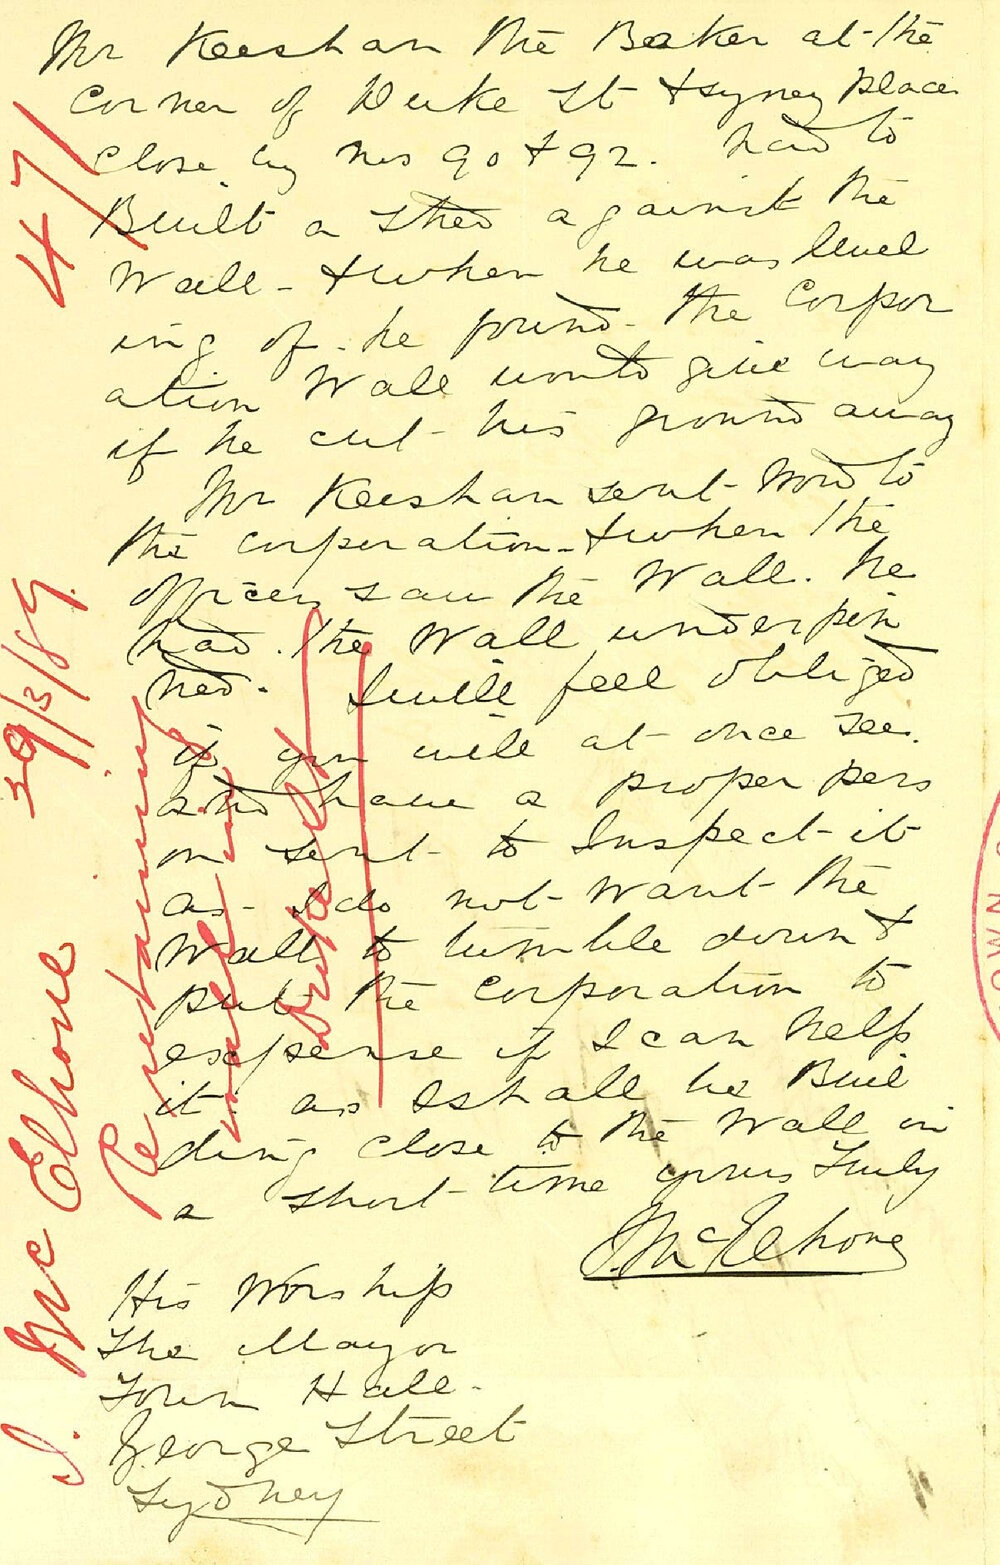 Mr Keeshan the Baker at the
Corner of Duke St & Syney Place
close by Nos 90 & 92. had to
Built a Shed against the
Wall - & when he was level
ing of. he found. the Corpor
ation Wall would give way
if he cut his ground away
Mr Keeshan sent word to
the corporation - & when the
officers saw the Wall. he
had. the Wall underpin
ned. I will feel obliged
if you will at once see.
and have a proper pers
on sent to Inspect it
as I do not want the
Wall to tumble down &
put the Corporation to
expense if I can help
it. as I shall be Buil
ding close to the Wall in
a short time yours Truly
J. McElhone
His Worship
The Mayor
Town Hall.
George Street
Sydney
471
29/3/89.
J. McElhone
Re retaining
wall in
Duke St
OWN